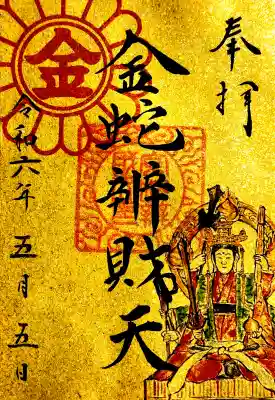 奉拝
金蛇辨財天
令和六年 五月五日
金